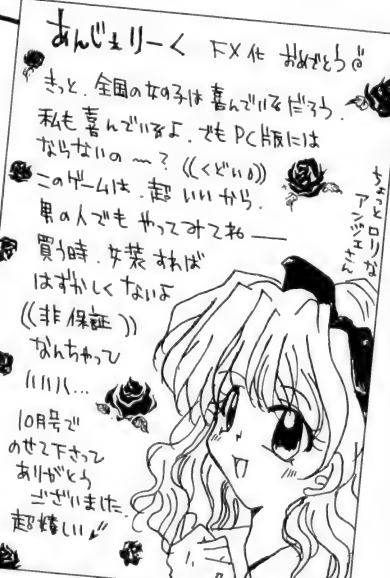 あんじぇりーく FX化 おめでとう
きっと、全国の女の子は喜んでいるだろう.
私も喜んでいるよ. でもPC版には
ならないの〜? ((くどい))
このゲームは、超いいから、
男の人でもやってみてねー
買う時、女装すれば
はずかしくないよ
((非保証))
なんちゃって
ハハハ…
10月号で
のせて下さって
ありがとう
ございました.
超嬉しい
ちょっとロリな
アンジェさん